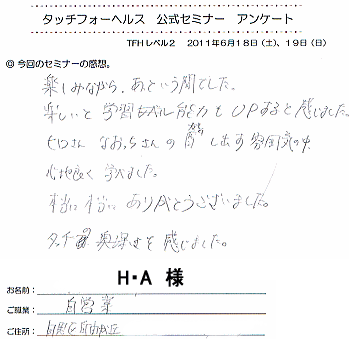 タッチフォーヘルス 公式セミナー アンケート
TFHレベル2 2011年6月18日(土)、19日(日)
◎ 今回のセミナーの感想。
楽しみながら、あっという間でした。
楽しいと学習レベル能力もUPすると感じました。
ヒロさん なおらさんの 醸し出す雰囲気の中
心地良く 学べました。
本当に 本当に ありがとうございました。
タッチの奥深さを感じました。
H・A 様
お名前:
ご職業: 自営業
ご住所: 目黒区自由が丘